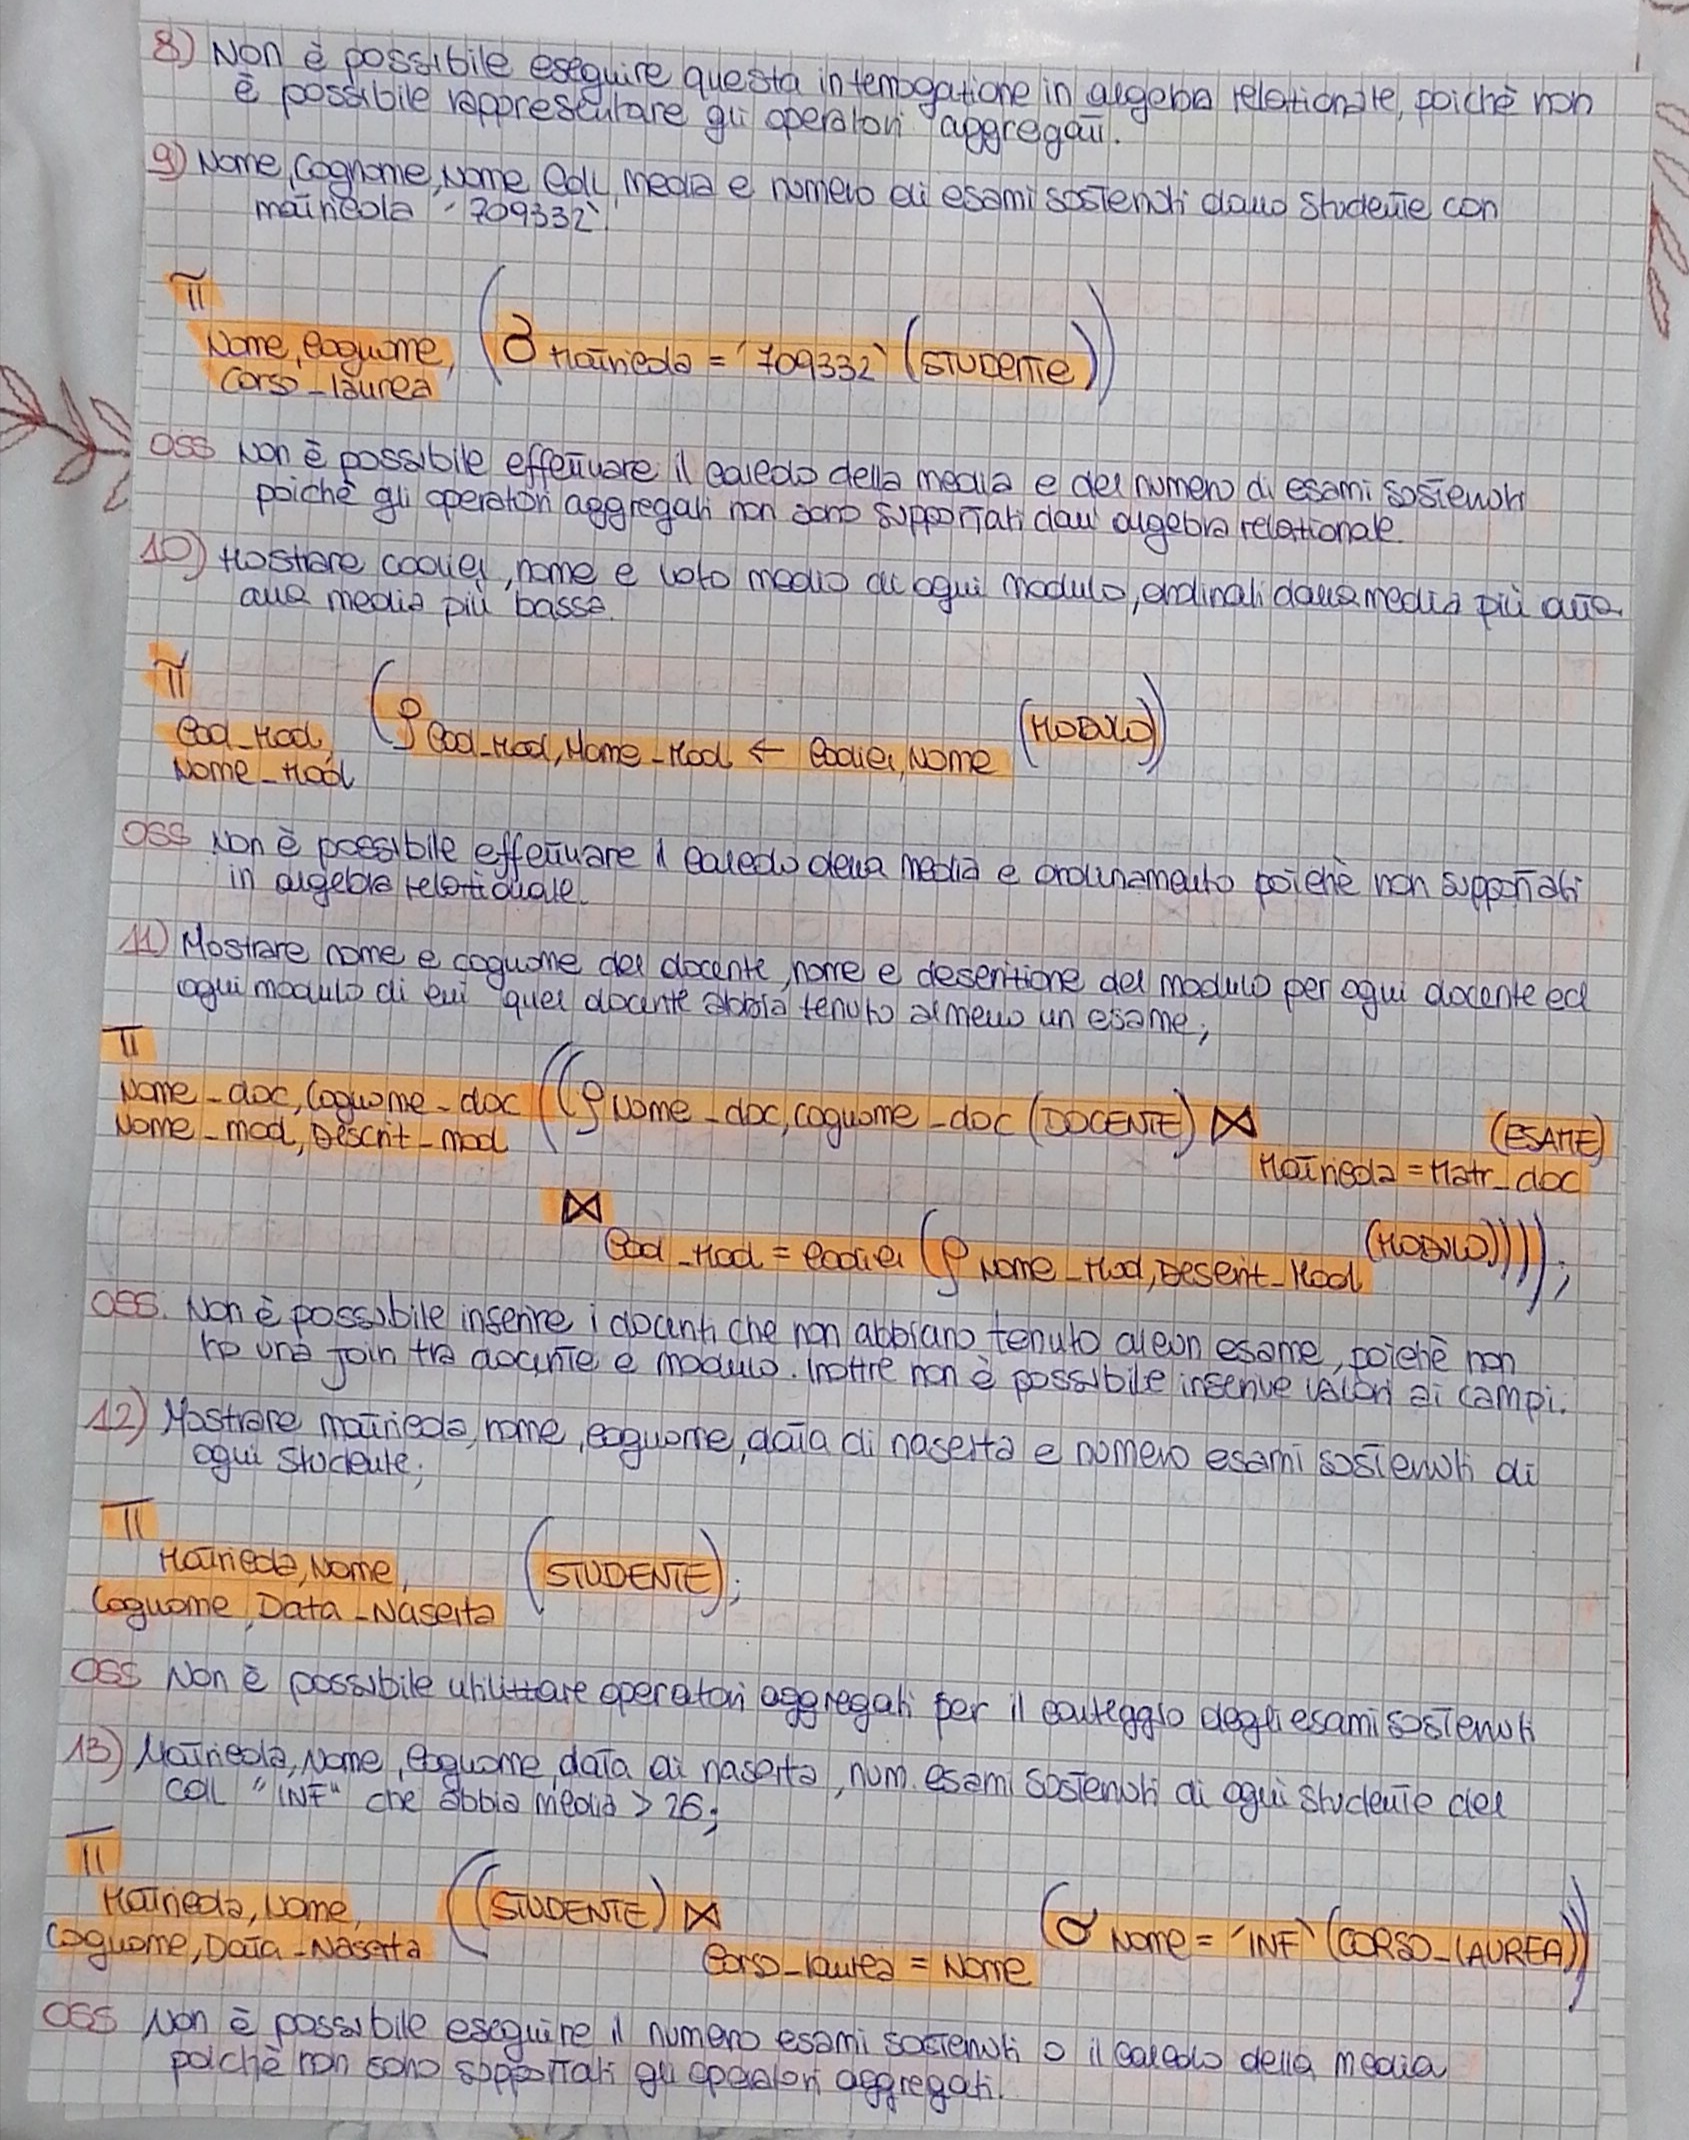 8) Non è possibile eseguire questa interrogazione in algebra relazionale, poichè non
è possibile rappresentare gli operatori aggregati.
9) Nome, Cognome, Nome Cdl, media e numero di esami sostenuti dallo studente con
matricola '709332'.
π
Nome, Cognome,
Corso_laurea
(σ Matricola = '709332' (STUDENTE))
OSS Non è possibile effettuare il calcolo della media e del numero di esami sostenuti
poichè gli operatori aggregati non sono supportati dall'algebra relazionale.
10) Mostrare codici, nome e voto medio di ogni modulo, ordinati dalla media più alta
alla media più bassa.
π
Cod_Mod,
Nome_Mod
(ρ Cod_Mod, Nome_Mod ← Codici, Nome (MODULO))
OSS Non è possibile effettuare il calcolo della media e ordinamento poichè non supportati
in algebra relazionale.
11) Mostrare nome e cognome del docente, nome e descrizione del modulo per ogni docente ed
ogni modulo di cui quel docente abbia tenuto almeno un esame;
π
Nome_doc, Cognome_doc
Nome_mod, Descrit_mod
((ρ Nome_doc, cognome_doc (DOCENTE) ⋈ Matricola = Matr_doc (ESAME)
⋈ Cod_Mod = Codici (ρ Nome_Mod, Descrit_Mod (MODULO))));
OSS. Non è possibile inserire i docenti che non abbiano tenuto alcun esame, poichè non
ho una join tra docente e modulo. Inoltre non è possibile inserire valori ai campi.
12) Mostrare matricola, nome, cognome, data di nascita e numero esami sostenuti di
ogni studente;
π
Matricola, Nome,
Cognome, Data_Nascita
(STUDENTE);
OSS Non è possibile utilizzare operatori aggregati per il conteggio degli esami sostenuti
13) Matricola, Nome, Cognome, data di nascita, num. esami sostenuti di ogni studente del
CdL "INF" che abbia media > 26;
π
Matricola, Nome,
Cognome, Data_Nascita
((STUDENTE) ⋈ Corso_laurea = Nome (σ Nome = 'INF' (CORSO_LAUREA))
OSS Non è possibile eseguire il numero esami sostenuti o il calcolo della media
poichè non sono supportati gli operatori aggregati.